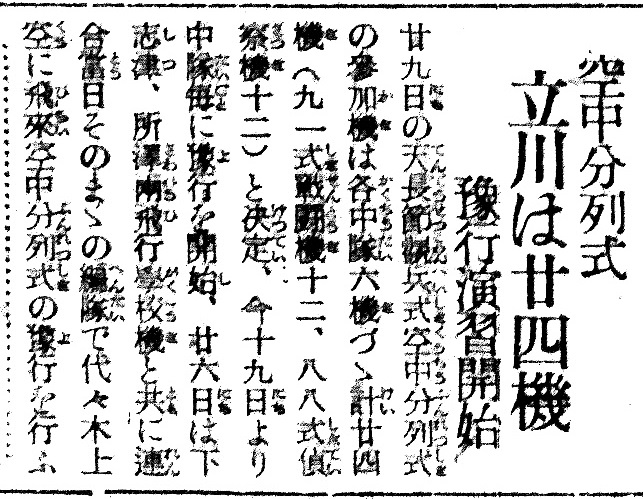 空中分列式
立川は廿四機
豫行演習開始
廿九日の天長節觀兵式空中分列式
の參加機は各中隊六機づゝ計廿四
機(九一式戰鬪機十二、八八式偵
察機十二)と決定、今十九日より
中隊毎に豫行を開始、廿六日は下
志津、所澤兩飛行學校機と共に連
合當日そのまゝの編隊で代々木上
空に飛來空中分列式の豫行を行ふ